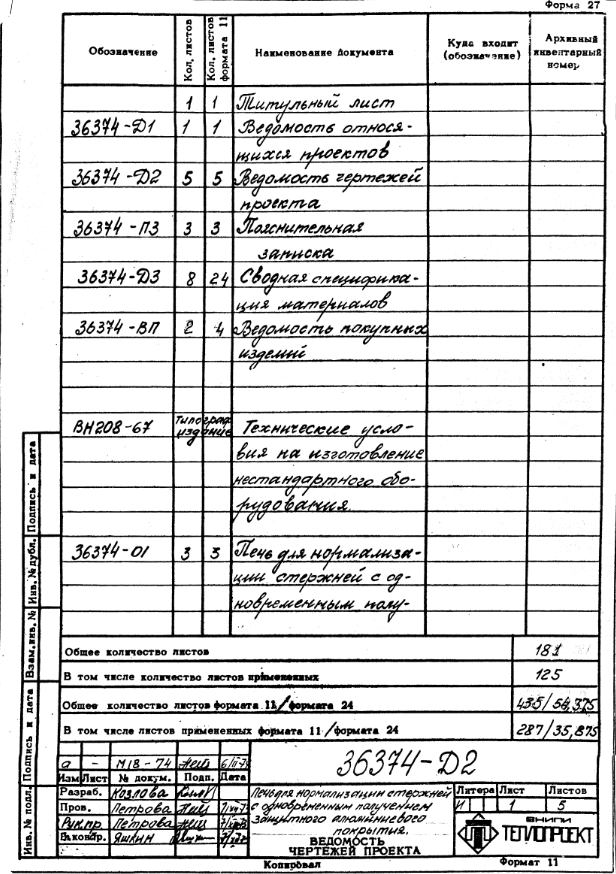 Форма 27
Обозначение Кол. листов Кол. листов формата 11 Наименование Документа Куда входит (обозначение) Архивный инвентарный номер
1 1 Титульный лист
36374-Д1 1 1 Ведомость относя-
щихся проектов
36374-Д2 5 5 Ведомость чертежей
проекта
36374-ПЗ 3 3 Пояснительная
записка
36374-Д3 8 24 Сводная специфика-
ция материалов
36374-ВП 2 4 Ведомость покупных
изделий
ВН208-67 Типограф. издание Технические усло-
вия на изготовление
нестандартного обо-
рудования.
36374-01 3 3 Печь для нормализа-
ции стержней с од-
новременным полу-
Общее количество листов 181
В том числе количество листов примененных 125
Общее количество листов формата 11/формата 24 435/54,375
В том числе листов примененных формата 11/формата 24 287/35,875
а - М18-74
Изм Лист № докум. Подп. Дата
36374-Д2
Разраб. Козлова
Пров. Петрова
Рук.пр. Петрова
Яшкин
Печь для нормализации стержней
с одновременным получением
защитного алюминиевого
покрытия.
ВЕДОМОСТЬ
ЧЕРТЕЖЕЙ ПРОЕКТА
Литера Лист Листов
И 1 5
ВНИПИ
ТЕПЛОПРОЕКТ
Копировал Формат 11
Инв. № подл. Подпись и дата Взам.инв. № Инв. № дубл. Подпись и дата